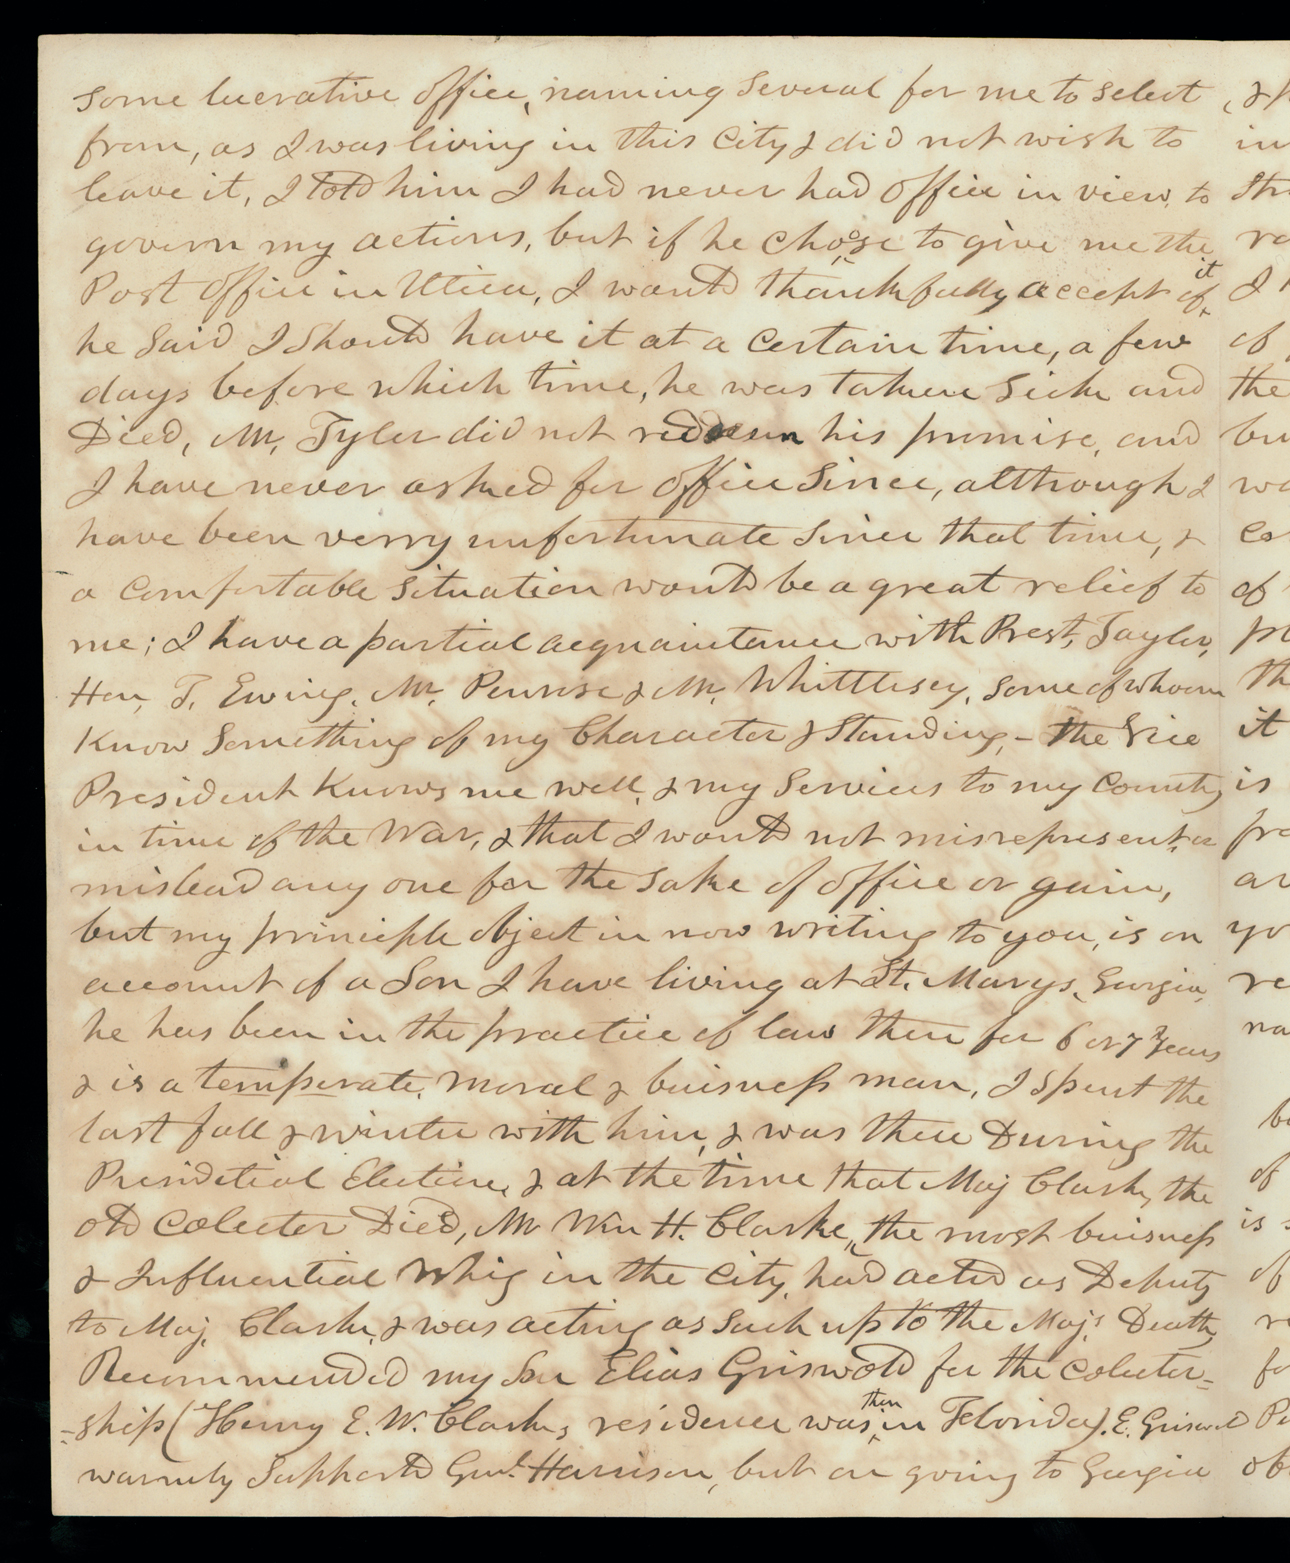 some lucrative office, naming several for me to select
from, as I was living in this City & did not wish to
leave it, I told him I had never had office in view, to
govern my actions, but if he chose to give me the
Post office in Utica, I would thankfully accept of it
he said I should have it at a certain time, a few
days before which time, he was taken sick and
Died, Mr, Tyler did not redeem his promise, and
I have never asked for office since, although I
have been verry unfortunate since that time, &
a comfortable situation would be a great relief to
me; I have a partial acquaintance with Prest, Taylor,
Hon, T, Ewing, Mr, Penrose & Mr, Whittlesey, some of whoom
Know something of my Character & Standing, - the Vice
President Knows me well, & my services to my County
in time of the War, & that I would not misrepresent, or
mislead any one for the sake of office or gain,
but my principle object in now writing to you, is on
account of a Son I have living at St. Marys, Georgia,
he has been in the practice of law there for 6 or 7 years
& is a temperate, moral & buisness man, I spent the
last fall & winter with him, & was there During the
Presidetial Election, & at the time that Maj Clark, the
old Colecter Died, Mr Wm H. Clarke, the most buisness
& Influential Whig in the City, had acted as Deputy
to Maj, Clark, & was acting as such up to the Majs Death,
Recommended my Son Elias Griswold for the Colecter-
-ship (Henry E. W. Clarks, residence was then in Florida). E. Griswold
warmly Supported Genl. Harrison, but on going to Georgia